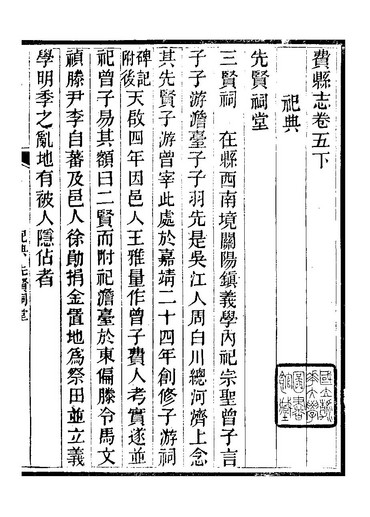 費縣志卷五下
祀典
先賢祠堂
三賢祠 在縣西南境關陽鎮義學內祀宗聖曾子言
子子游澹臺子子羽先是吳江人周白川總河濟上念
其先賢子游曾宰此處於嘉靖二十四年創修子游祠
碑記附後天啟四年因邑人王雅量作曾子費人考實遂並
祀曾子易其額曰二賢而附祀澹臺於東偏滕令馬文
禎滕尹李自蕃及邑人徐勛捐金置地為祭田並立義
學明季之亂地有被人隱佔者
祀典 先賢祠堂